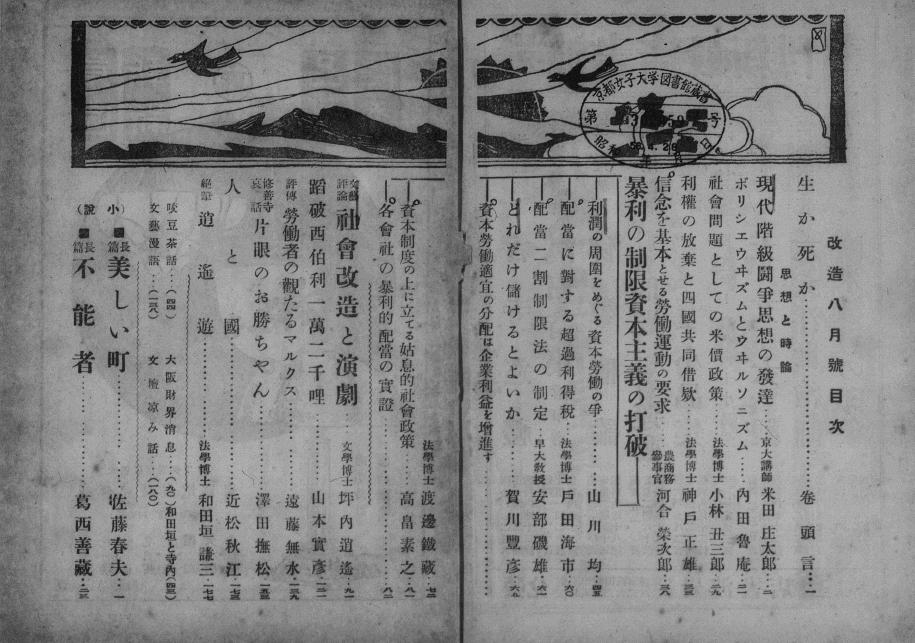 改造八月號目次
生か死か………卷頭言…一
思想と時論
現代階級闘爭思想の發達…京大講師 米田庄太郎…二
ボリシエウヰズムとウヰルソニズム…內田魯庵…二一
社會問題としての米價政策…法學博士 小林丑三郎…二九
利權の放棄と四國共同借欵…法學博士 神戶正雄…三三
信念を基本とせる勞働運動の要求…農商務參事官 河合榮次郎…三八
暴利の制限資本主義の打破
利潤の周圍をめぐる資本勞働の爭…山川均…四五
配當に對する超過利得稅…法學博士 戶田海市…六〇
配當二割制限法の制定…早大敎授 安部磯雄…六一
どれだけ儲けるとよいか…賀川豐彥…六八
資本勞働適宜の分配は企業利益を增進す…
法學博士 渡邊鐵藏…七三
資本制度の上に立てる姑息的社會政策…高畠素之…八一
各會社の暴利的配當の實證…八二
文藝評論 社會改造と演劇…文學博士 坪內逍遙…九一
蹈破西伯利一萬二千哩…山本實彥
評傳 勞働者の觀たるマルクス…遠藤無水…一三九
修善寺哀話 片眼のお勝ちやん…澤田撫松
人と國…近松秋江
絕筆 逍遙遊…法學博士 和田垣謙三…一七七
唊豆茶話…(四四) 大阪財界消息…(九〇) 和田垣と寺內(四三)
文藝漫語…(一三八) 文壇凉み話…(一六〇)
小說 長篇 美しい町…佐藤春夫…一
長篇 不能者…葛西善藏…二三
京都女子大学図書館蔵書
第 号
昭和 年 月 日
56.4.28